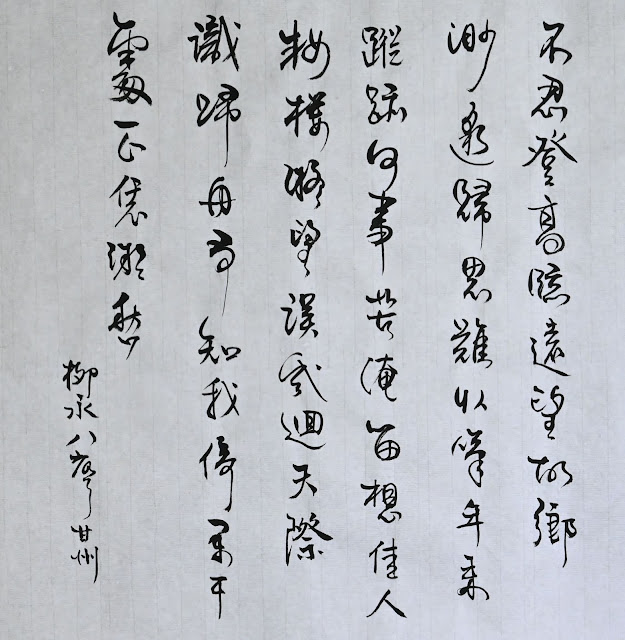 不忍登高臨遠望故鄉
渺邈歸思難收嘆年來
蹤跡何事苦淹留想佳人
妝樓凝望誤幾迴天際
識歸舟爭知我倚闌干
處正恁凝愁
柳永八聲甘州